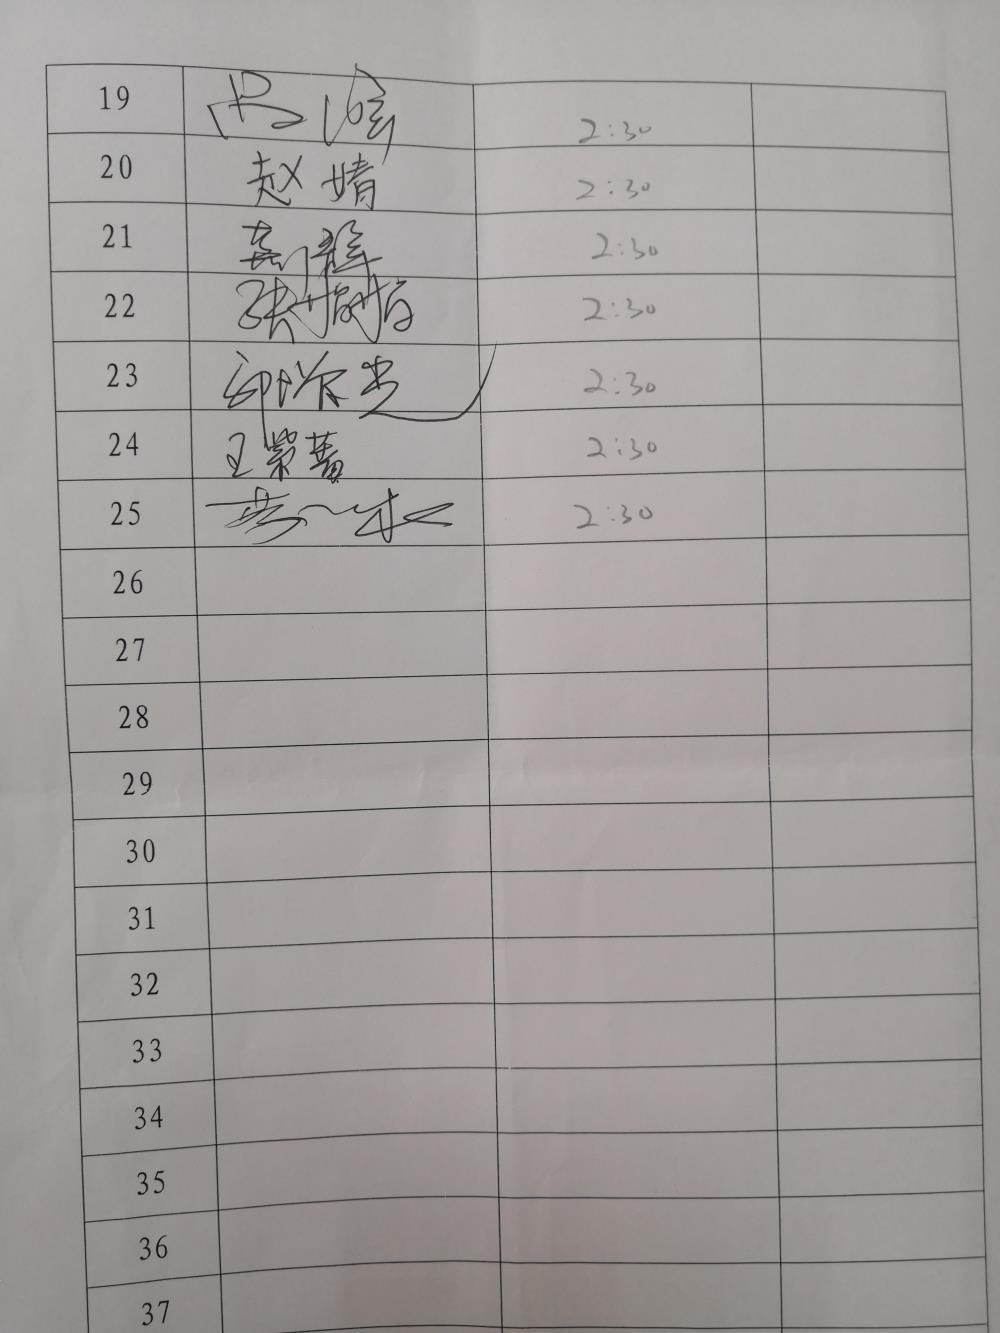 19 2:30
20 赵婧 2:30
21 2:30
22 张 2:30
23 2:30
24 王紫薷 2:30
25 2:30
26
27
28
29
30
31
32
33
34
35
36
37